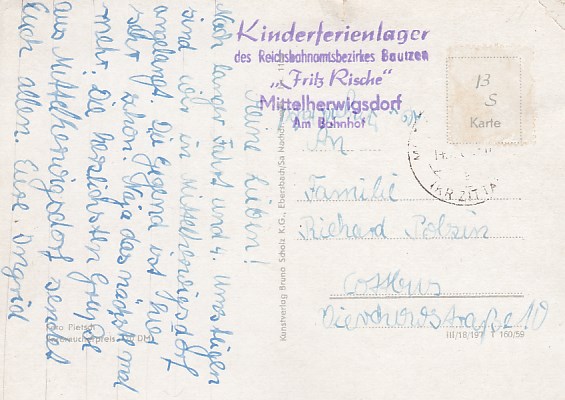 Kinderferienlager
des Reichsbahnamtsbezirkes Bautzen
„Fritz Rische"
Mittelherwigsdorf
Am Bahnhof
13
S
Karte
(KR ZITTA
Meine Lieben!
Nach langer Fahrt und 4. Umsteigen
sind wir in Mittelherwigsdorf
angelangt. Die Gegend ist hier
sehr schön. Naja das nächste mal
mehr. Die herzlichsten Grüße
aus Mittelherwigsdorf sendet
Euch allen. Eure Ingrid
An
Familie
Richard Polzin
Cottbus
straße 10
Kunstverlag Bruno Scholz K.G., Ebersbach/Sa
Foto Pietsch
Verbraucherpreis DM
III/18/197 160/59